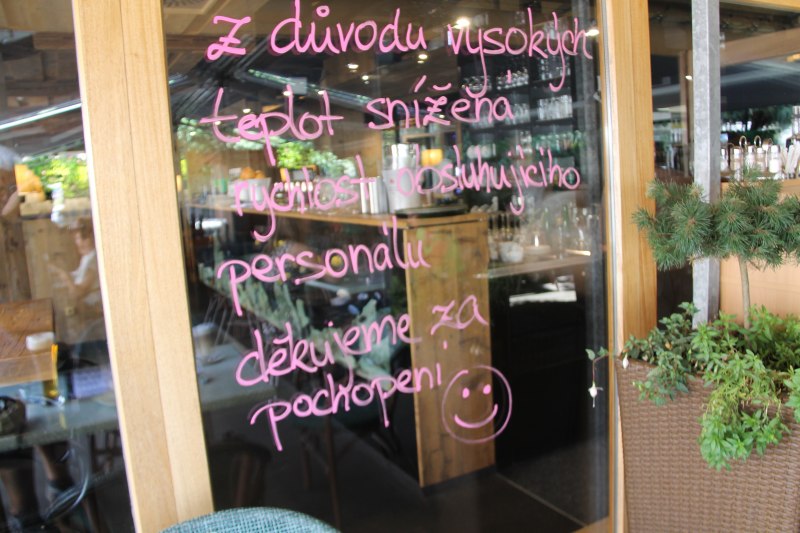 Z důvodu vysokých
teplot snížená
rychlost obsluhujícího
personálu
děkujeme za
pochopení